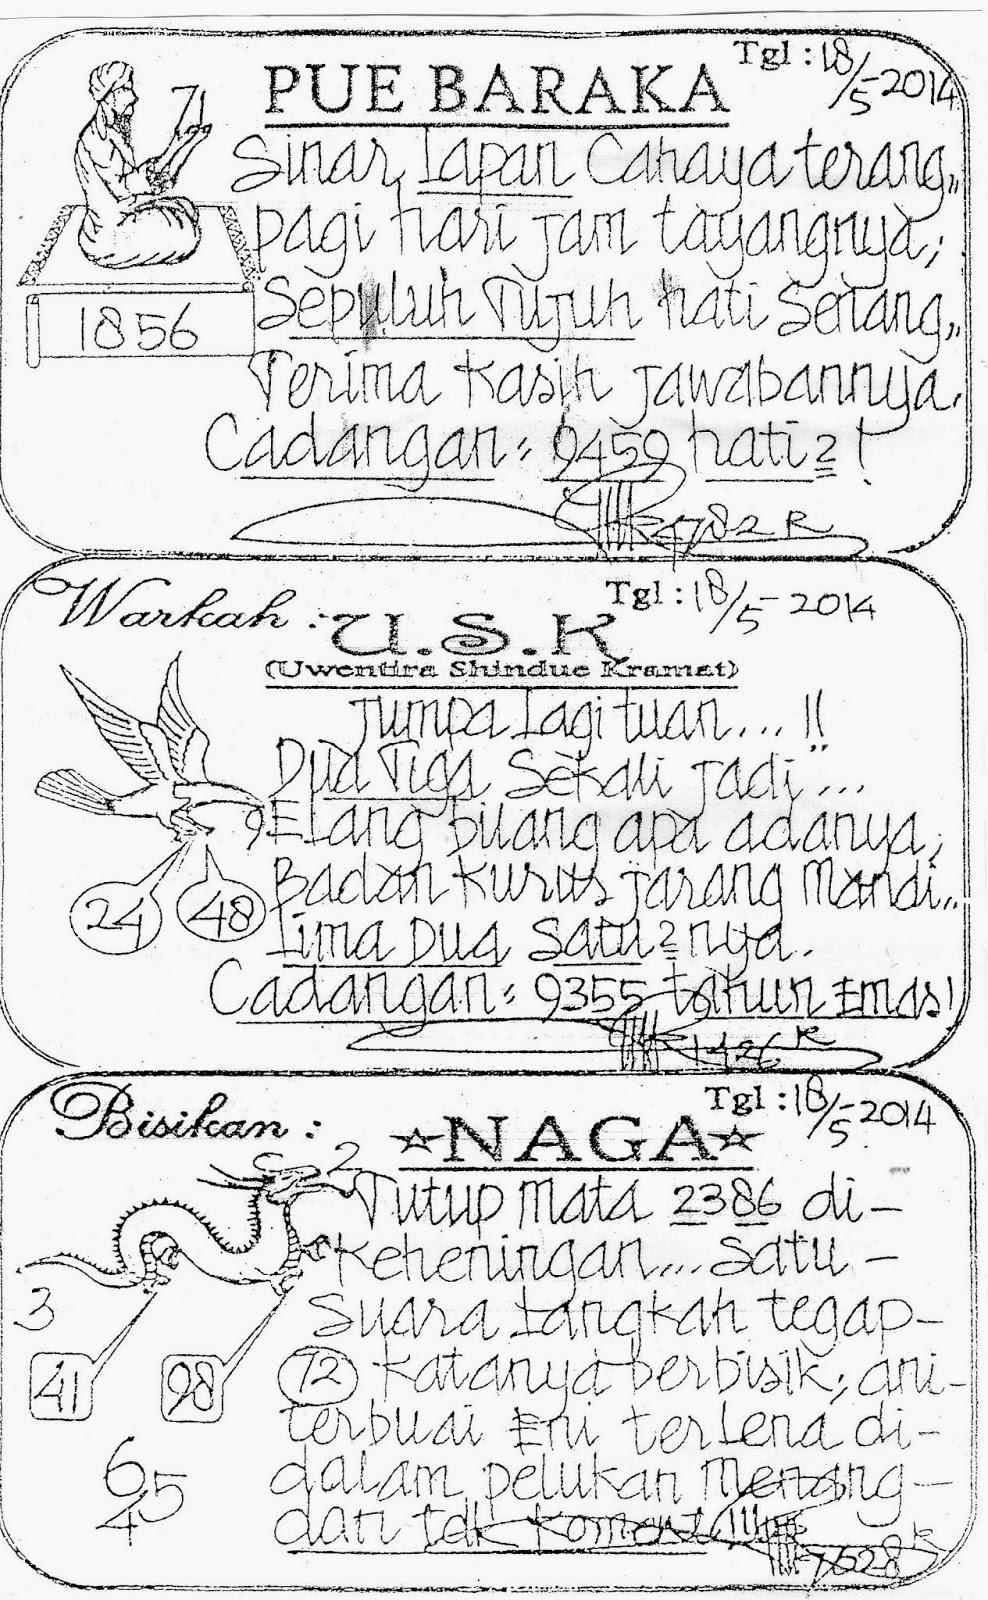 Tgl : 18/5-2014
PUE BARAKA
71
Sinar Lapan Cahaya terang,,
pagi hari jam tayangnya;
1856
Sepuluh Tujuh hati Senang,,
Terima Kasih jawabannya.
Cadangan : 9459 hati2 !
4782 R
Warkah : U.S.K
Tgl : 18/5-2014
(Uwentira Shindue Kramat)
Jumpa Lagi tuan...!!
Dua Tiga Sekali jadi"...
9
ELang bilang apa adanya;
24 48
Badan Kurus jarang Mandi..
Lima Dua Satu2nya.
Cadangan : 9355 tahun Emas!
1426 R
Bisikan :
Tgl : 18/5-2014
☆NAGA☆
2
Tutup Mata 2386 di-
Keheningan... Satu-
3
Suara Langkah tegap-
41 98
72 katanya berbisik; ani-
terbuai Eni terLena di-
6
45
dalam pelukan Menang-
dari tdk
7628 R